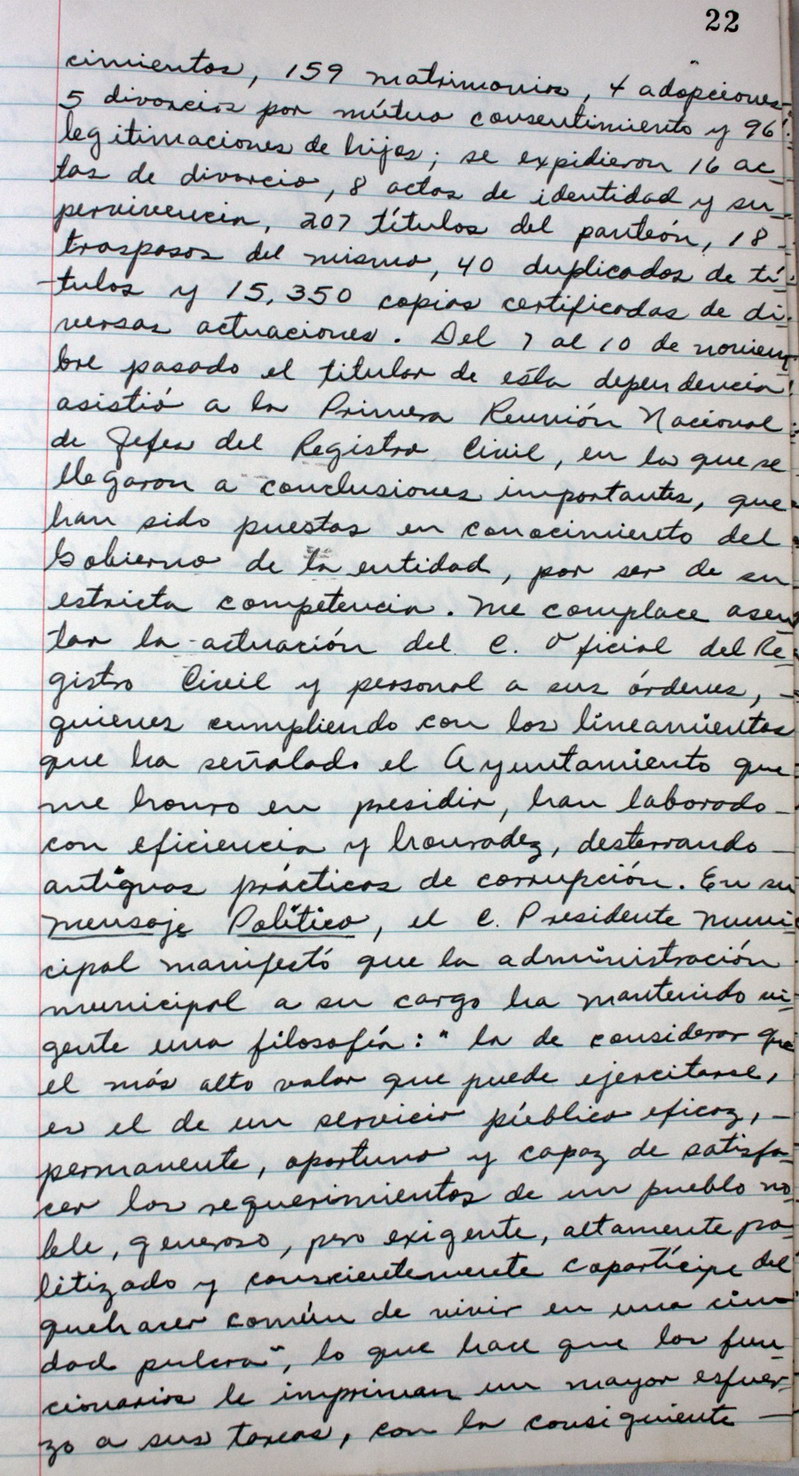 22
cimientos, 159 matrimonios, 4 adopciones
5 divorcios por mútuo consentimiento y 96
legitimaciones de hijos; se expidieron 16 ac-
tas de divorcio, 8 actas de identidad y su-
pervivencia, 207 títulos del panteón, 18 -
traspasos del mismo, 40 duplicados de tí-
tulos y 15,350 copias certificadas de di-
versas actuaciones. Del 7 al 10 de noviem-
bre pasado el titular de esta dependencia
asistió a la Primera Reunión Nacional
de Jefes del Registro Civil, en la que se
llegaron a conclusiones importantes, que
han sido puestas en conocimiento del
Gobierno de la entidad, por ser de su
estricta competencia. Me complace asen-
tar la actuación del C. Oficial del Re-
gistro Civil y personal a sus órdenes, -
quienes cumpliendo con los lineamientos
que ha señalado el Ayuntamiento que
me honro en presidir, han laborado -
con eficiencia y honradez, desterrando -
antiguas prácticas de corrupción. En su
Mensaje Político, el C. Presidente Muni-
cipal manifestó que la administración
municipal a su cargo ha mantenido vi-
gente una filosofía: " la de considerar que
el más alto valor que puede ejercitarse,
es el de un servicio público eficaz, -
permanente, oportuno y capaz de satisfa-
cer los requerimientos de un pueblo no-
ble, generoso, pero exigente, altamente po-
litizado y conscientemente copartícipe del
quehacer común de vivir en una ciu-
dad pulcra", lo que hace que los fun-
cionarios le impriman un mayor esfuer-
zo a sus tareas, con la consiguiente -